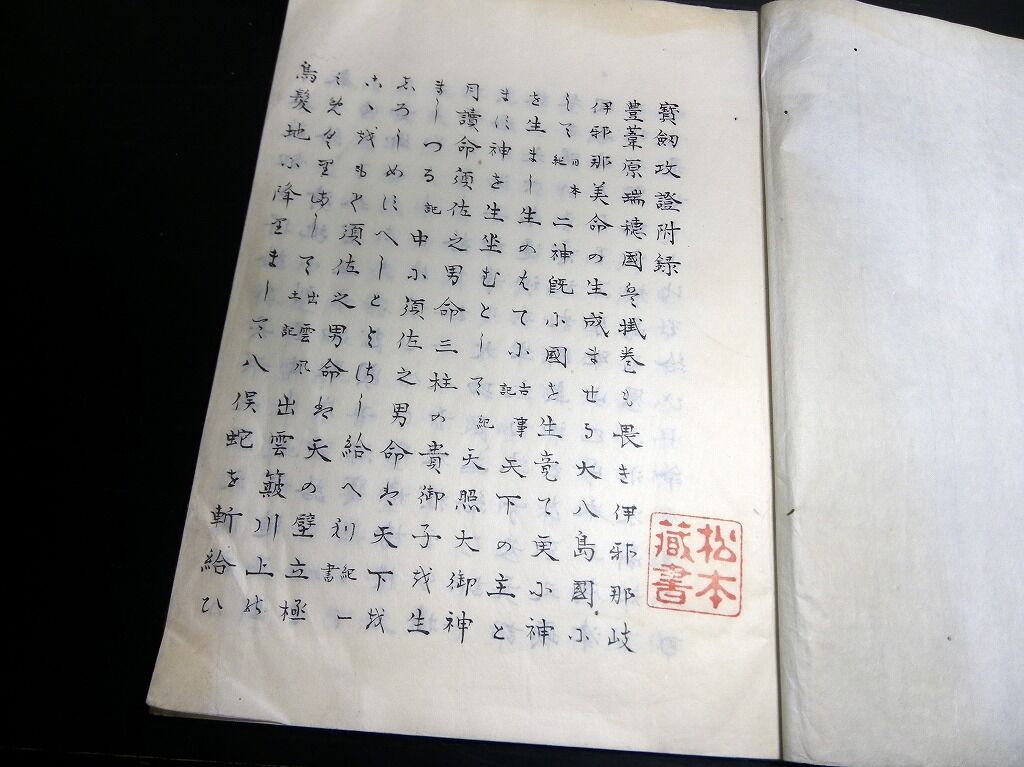 寶劔攷證附録
豊葦原瑞穂國者掛巻も畏き伊邪那岐
伊邪那美命の生成ませる大八島國に
して日本紀二神既小國を生竟て更小神
を生まし生のはて小古事記天下の主と
ます神を生坐むとして紀天照大御神
月讀命須佐之男命三柱の貴御子を生
ましつる記中小須佐之男命は天下を
しろしめすへしとよさし給へり紀一書
かゝれは須佐之男命は天の壁立極
ありまして出雲風土記出雲簸川上の
鳥髮地小降りまして八俣蛇を斬給ひ
松本
藏書